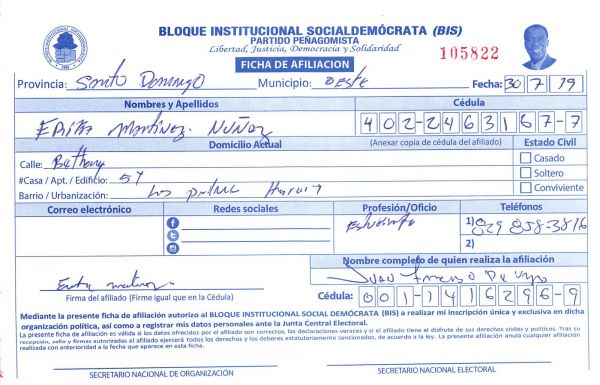 BLOQUE INSTITUCIONAL SOCIALDEMÓCRATA (BIS)
PARTIDO PEÑAGOMISTA
Libertad, Justicia, Democracia y Solidaridad
105822
FICHA DE AFILIACION
Provincia: Santo Domingo Municipio: oeste Fecha: 30 7 19
Nombres y Apellidos Cédula
Martinez Nuñez 402-2463167-7
Domicilio Actual (Anexar copia de cédula del afiliado) Estado Civil
Calle: Casado
#Casa / Apt. / Edificio: 57 Soltero
Barrio / Urbanización: Los Conviviente
Correo electrónico Redes sociales Profesión/Oficio Teléfonos
Estudiante 1) 829 858-3816
2)
Nombre completo de quien realiza la afiliación
Juan
Firma del afiliado (Firme igual que en la Cédula) Cédula: 001-1416296-9
Mediante la presente ficha de afiliación autorizo al BLOQUE INSTITUCIONAL SOCIAL DEMÓCRATA (BIS) a realizar mi inscripción única y exclusiva en dicha
organización política, así como a registrar mis datos personales ante la Junta Central Electoral.
La presente ficha de afiliación es válida si los datos ofrecidos por el afiliado son correctos, las declaraciones veraces y si el afiliado tiene el disfrute de sus derechos civiles y políticos. Tras su
recepción, sello y firmas autorizadas el afiliado ejercerá todos los derechos y los deberes estatutariamente sancionados, de acuerdo a la ley. La presente afiliación anula cualquier afiliación
realizada con anterioridad a la fecha que aparece en esta ficha.
SECRETARIO NACIONAL DE ORGANIZACIÓN SECRETARIO NACIONAL ELECTORAL